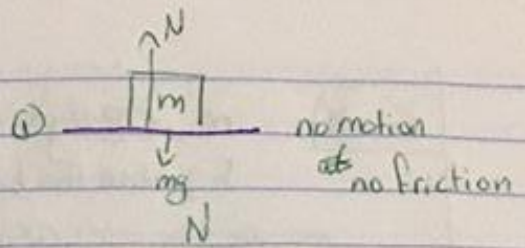 N
m
① no motion
no friction
mg
N